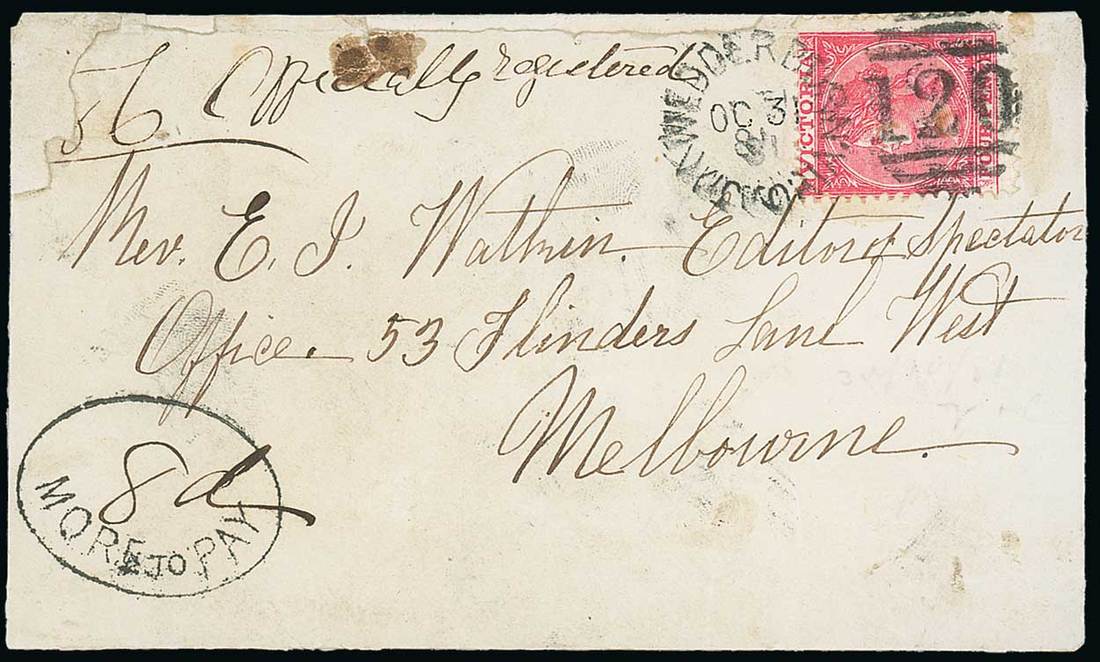 56 Officially registered
WEDDERBURN
OC 31
VICTORIA
120
FOURPENCE
Rev. E. J. Watkin. Editor of Spectator
Office. 53 Flinders Lane West
Melbourne.
8d
MORE TO PAY